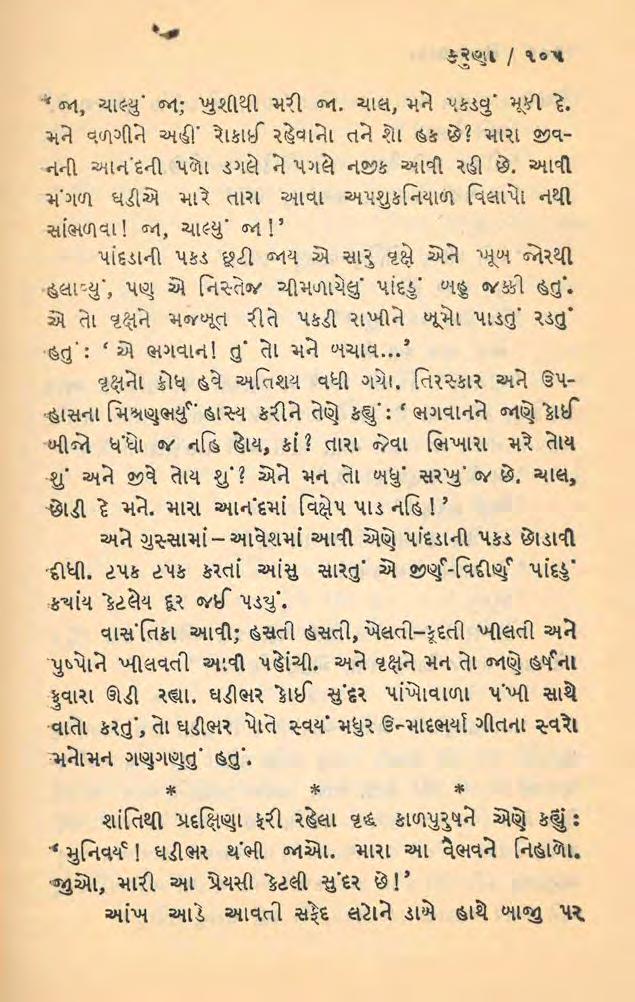 કરુણા / ૧૦૫
‘ જા, ચાલ્યું જા; ખુશીથી મરી જા. ચાલ, મને પકડવું મૂકી દે.
મને વળગીને અહીં રોકાઈ રહેવાનો તને શો હક છે? મારા જીવ-
નની આનંદની પળો ડગલે ને પગલે નજીક આવી રહી છે. આવી
મંગળ ઘડીએ મારે તારા આવા અપશુકનિયાળ વિલાપો નથી
સાંભળવા! જા, ચાલ્યું જા !’
પાંદડાની પકડ છૂટી જાય એ સારુ વૃક્ષે એને ખૂબ જોરથી
હલાવ્યું, પણ એ નિસ્તેજ ચીમળાયેલું પાંદડું બહુ જક્કી હતું.
એ તો વૃક્ષને મજબૂત રીતે પકડી રાખીને બૂમો પાડતું રડતું
હતું : ‘ એ ભગવાન! તું તો મને બચાવ...’
વૃક્ષનો ક્રોધ હવે અતિશય વધી ગયો. તિરસ્કાર અને ઉપ-
હાસના મિશ્રણભર્યું હાસ્ય કરીને તેણે કહ્યું : ‘ ભગવાનને જાણે કોઈ
બીજો ધંધો જ નહિ હોય, કાં? તારા જેવા ભિખારા મરે તોય
શું અને જીવે તોય શું? એને મન તો બધું સરખું જ છે. ચાલ,
છોડી દે મને. મારા આનંદમાં વિક્ષેપ પાડ નહિ !’
અને ગુસ્સામાં – આવેશમાં આવી એણે પાંદડાની પકડ છોડાવી
દીધી. ટપક ટપક કરતાં આંસુ સારતું એ જીર્ણ-વિદીર્ણ પાંદડું
કયાંય કેટલેય દૂર જઈ પડયું.
વાસંતિકા આવી; હસતી હસતી, ખેલતી–કૂદતી ખીલતી અને
પુષ્પોને ખીલવતી આવી પહોંચી. અને વૃક્ષને મન તો જાણે હર્ષના
ફુવારા ઊડી રહ્યા. ઘડીભર કોઈ સુંદર પાંખોવાળા પંખી સાથે
વાતો કરતું, તો ઘડીભર પોતે સ્વયં મધુર ઉન્માદભર્યા ગીતના સ્વરો
મનોમન ગણગણતું હતું.
* * *
શાંતિથી પ્રદક્ષિણા ફરી રહેલા વૃદ્ધ કાળપુરુષને એણે કહ્યું :
‘ મુનિવર્ય ! ઘડીભર થંભી જાઓ. મારા આ વૈભવને નિહાળો.
જુઓ, મારી આ પ્રેયસી કેટલી સુંદર છે!’
આંખ આડે આવતી સફેદ લટોને ડાબે હાથે બાજુ પર